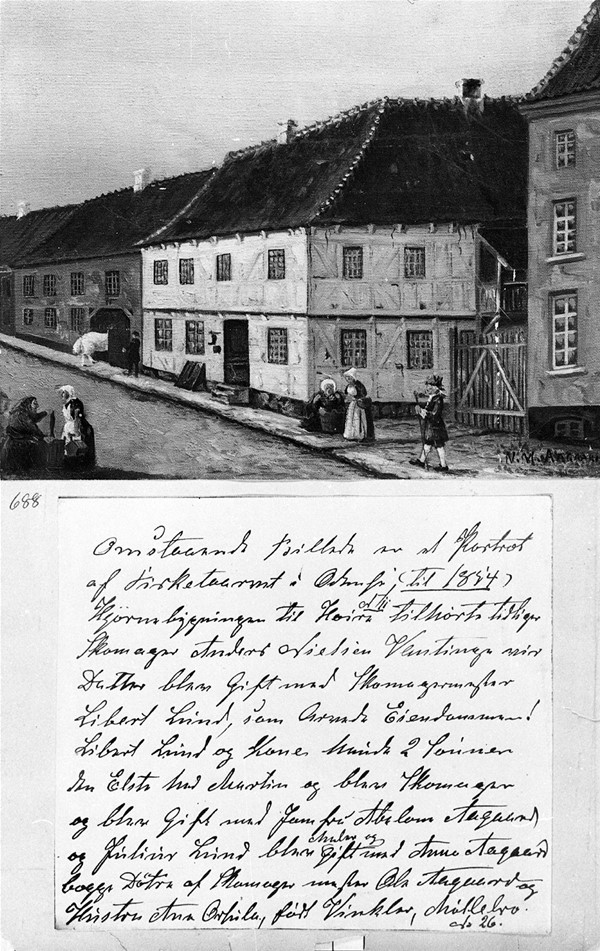 N. M. Aagaard
688
Omstaaende Billede er et Portræt
af Fisketaarvet i Odense, (til 1854)
Hjörnebygningen til Høire tilhörte tidliger
Skomager Anders Nielsen Ventinge
Datter blev Gift med Skomagermester
Libert Lund, som Arvede Eiendommen!
Libert Lund og Kone havde 2 Sönner
den Elste hed Martin og blev Skomager
og blev Gift med Jomfru Abelone Aagaard
og Julius Lund blev Maler og Gift med Anna Aagaard
begge Dötre af Skomager mester Ole Aagaard og
Hustru Ane Orsula, födt Vinkler, Möllebro.
No 26.